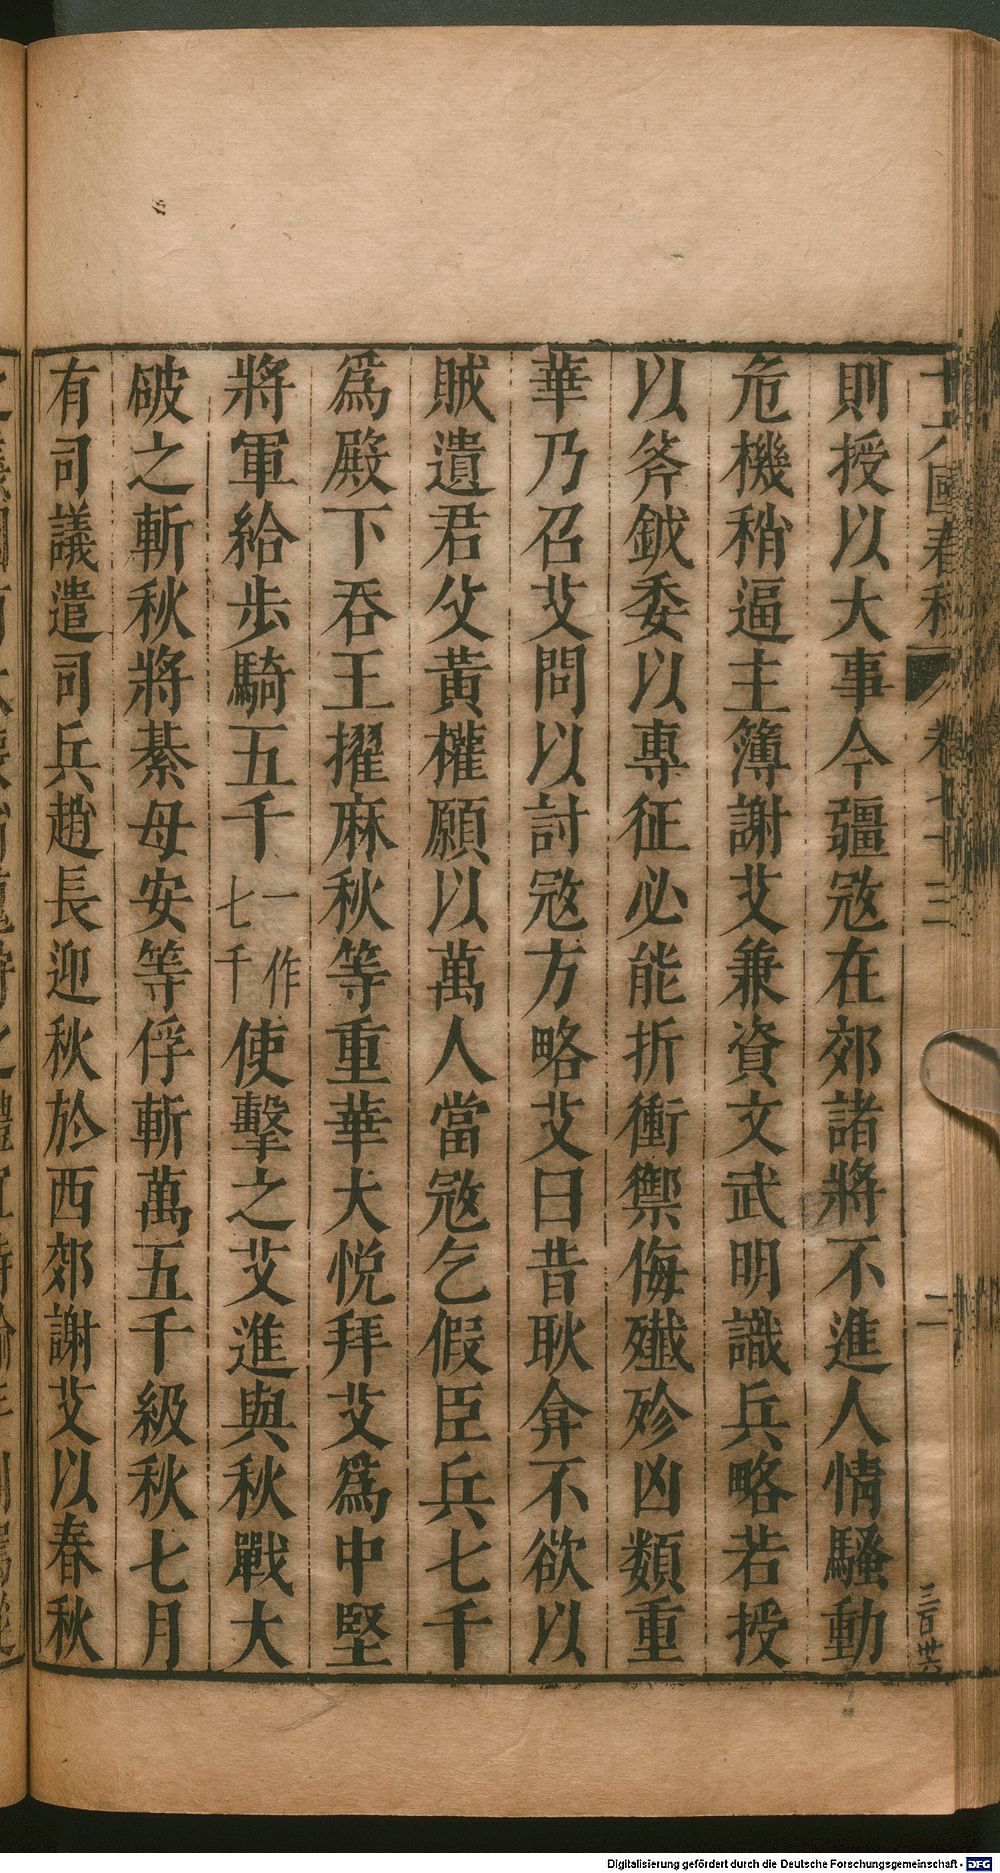 十六國春秋 卷七十三 二 三百卅六
則授以大事今疆㓂在郊諸將不進人情騷動
危機稍逼主簿謝艾兼資文武明識兵略若授
以斧鉞委以專征必能折衝禦侮殲殄凶類重
華乃召艾問以討㓂方略艾曰昔耿弇不欲以
賊遺君父黃權願以萬人當㓂乞假臣兵七千
爲殿下吞王擢麻秋等重華大悅拜艾爲中堅
將軍給步騎五千一作七千使擊之艾進與秋戰大
破之斬秋將綦母安等俘斬萬五千級秋七月
有司議遣司兵趙長迎秋於西郊謝艾以春秋
Digitalisierung gefördert durch die Deutsche Forschungsgemeinschaft - DFG